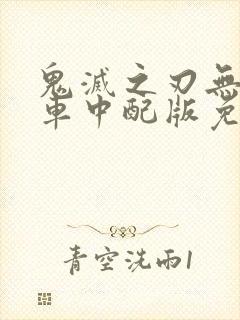 鬼滅之刃無
車中配版免
青空洗雨1